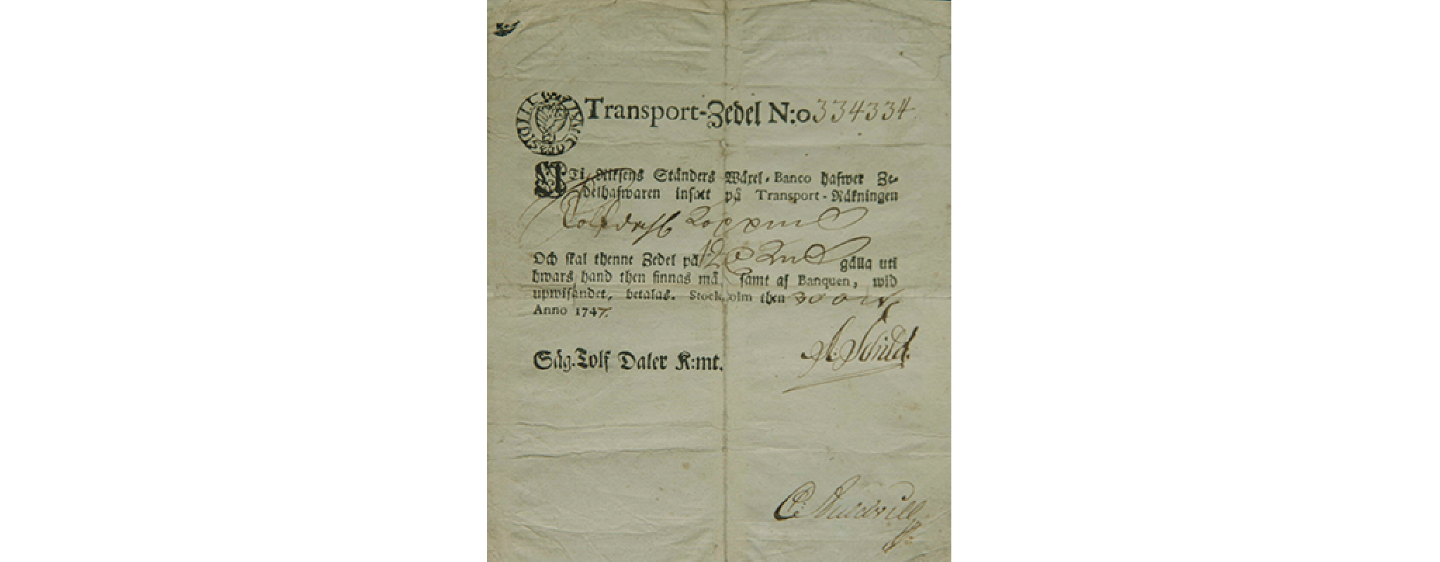 Transport-Zedel N:o 334334
UTi Riksens Ständers Wäxel-Banco hafwer Ze-
delhafwaren insatt på Transport-Räkningen
Och skal thenne Zedel på gälla uti
hwars hand then finnas må samt af Banquen, wid
upwisandet, betalas. Stockholm then
Anno 1747.
Säg. Tolf Daler K:mt.